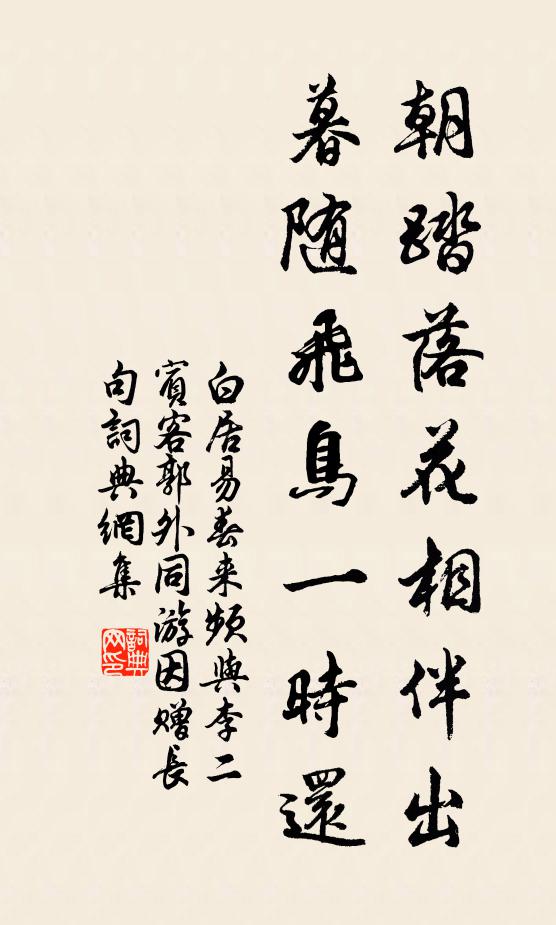 朝踏落花相伴出
暮随飛鳥一時還
白居易春来频與李二
賓客郭外同游因赠長
句詞典網集
詞典
网印